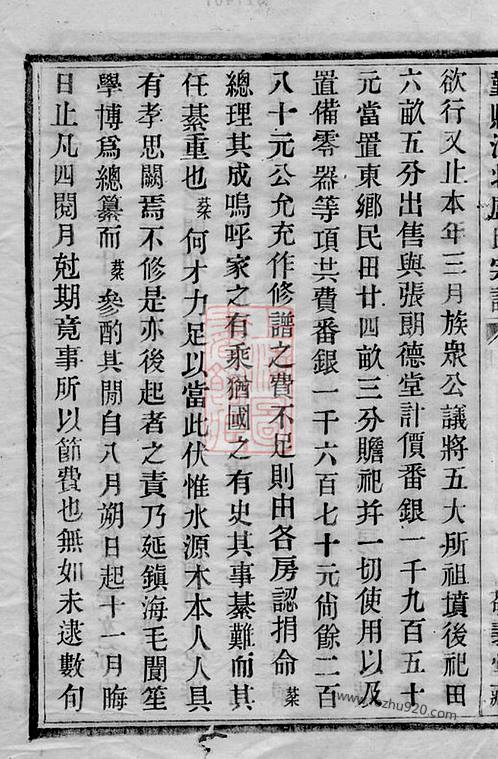 欲行又止本年三月族衆公議將五大所祖墳後祀田
六畝五分出售與張朗德堂計價番銀一千九百五十
元當置東鄉民田廿四畝三分贍祀并一切使用以及
置備零器等項共費番銀一千六百七十元尙餘二百
八十元公允充作修譜之費不足則由各房認捐命棻
總理其成嗚呼家之有乘猶國之有史其事綦難而其
任綦重也棻何才力足以當此伏惟水源木本人人具
有孝思闕焉不修是亦後起者之責乃延鎭海毛閬笙
學博爲總纂而棻參酌其閒自八月朔日起十一月晦
日止凡四閱月尅期竟事所以節費也無如未逮數旬